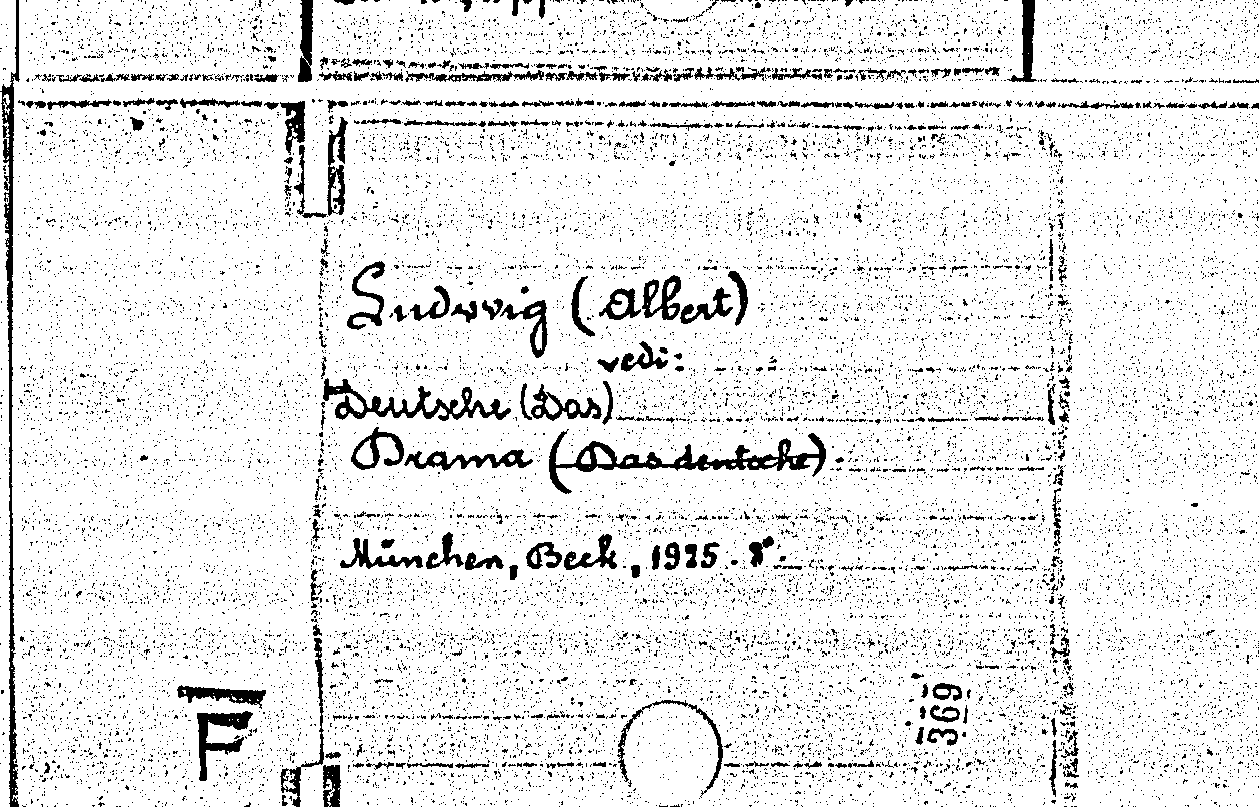 Ludwig (Albert)
vedi:
Deutsche (Das)
Drama (Das deutsche).
München, Beck, 1925. 8°.
F
369